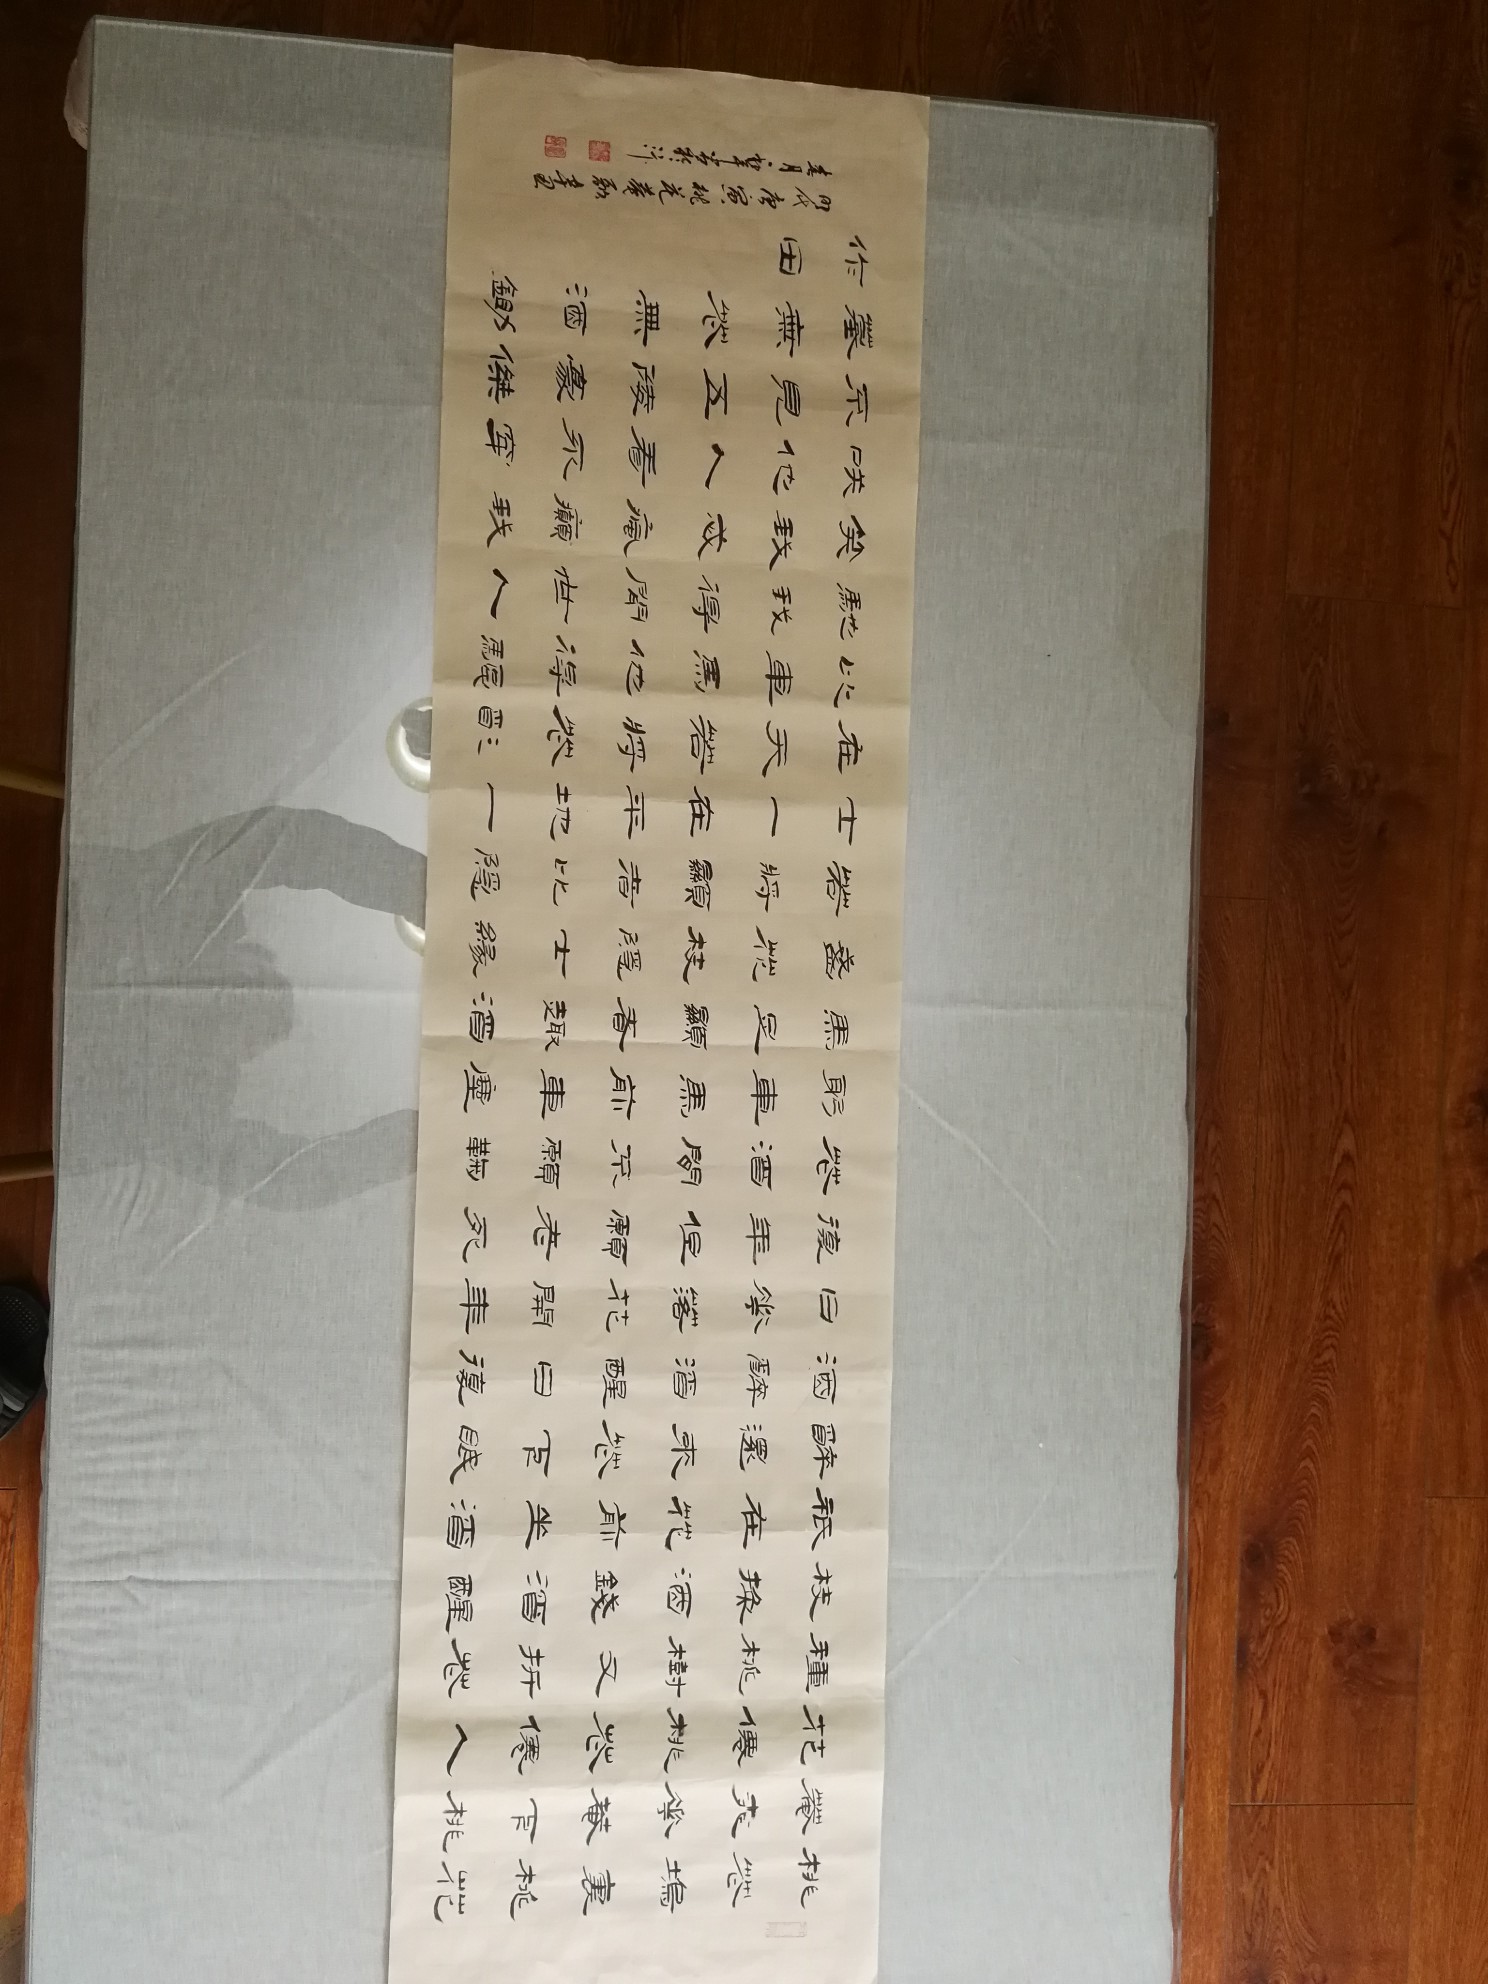 桃花塢裏桃花
菴桃花菴下桃
花僊桃花僊人
種桃樹又折花
枝換酒錢酒醒
祇在花前坐酒
醉還來花下眠
酒醉酒醒日復
日花落花開年
復年但願老死
花酒間不願鞠
躬車馬前車塵
馬足顯者趣酒
盞花枝隱士緣
若將顯者比隱
士一在平地一
在天若將花酒
比車馬他得驅
馳我得閒世人
笑我忒瘋癲我
咲他人看不穿
不見五陵豪傑
墓無花無酒鋤
作田
明代唐寅桃花菴歌辛丑
春月於汴